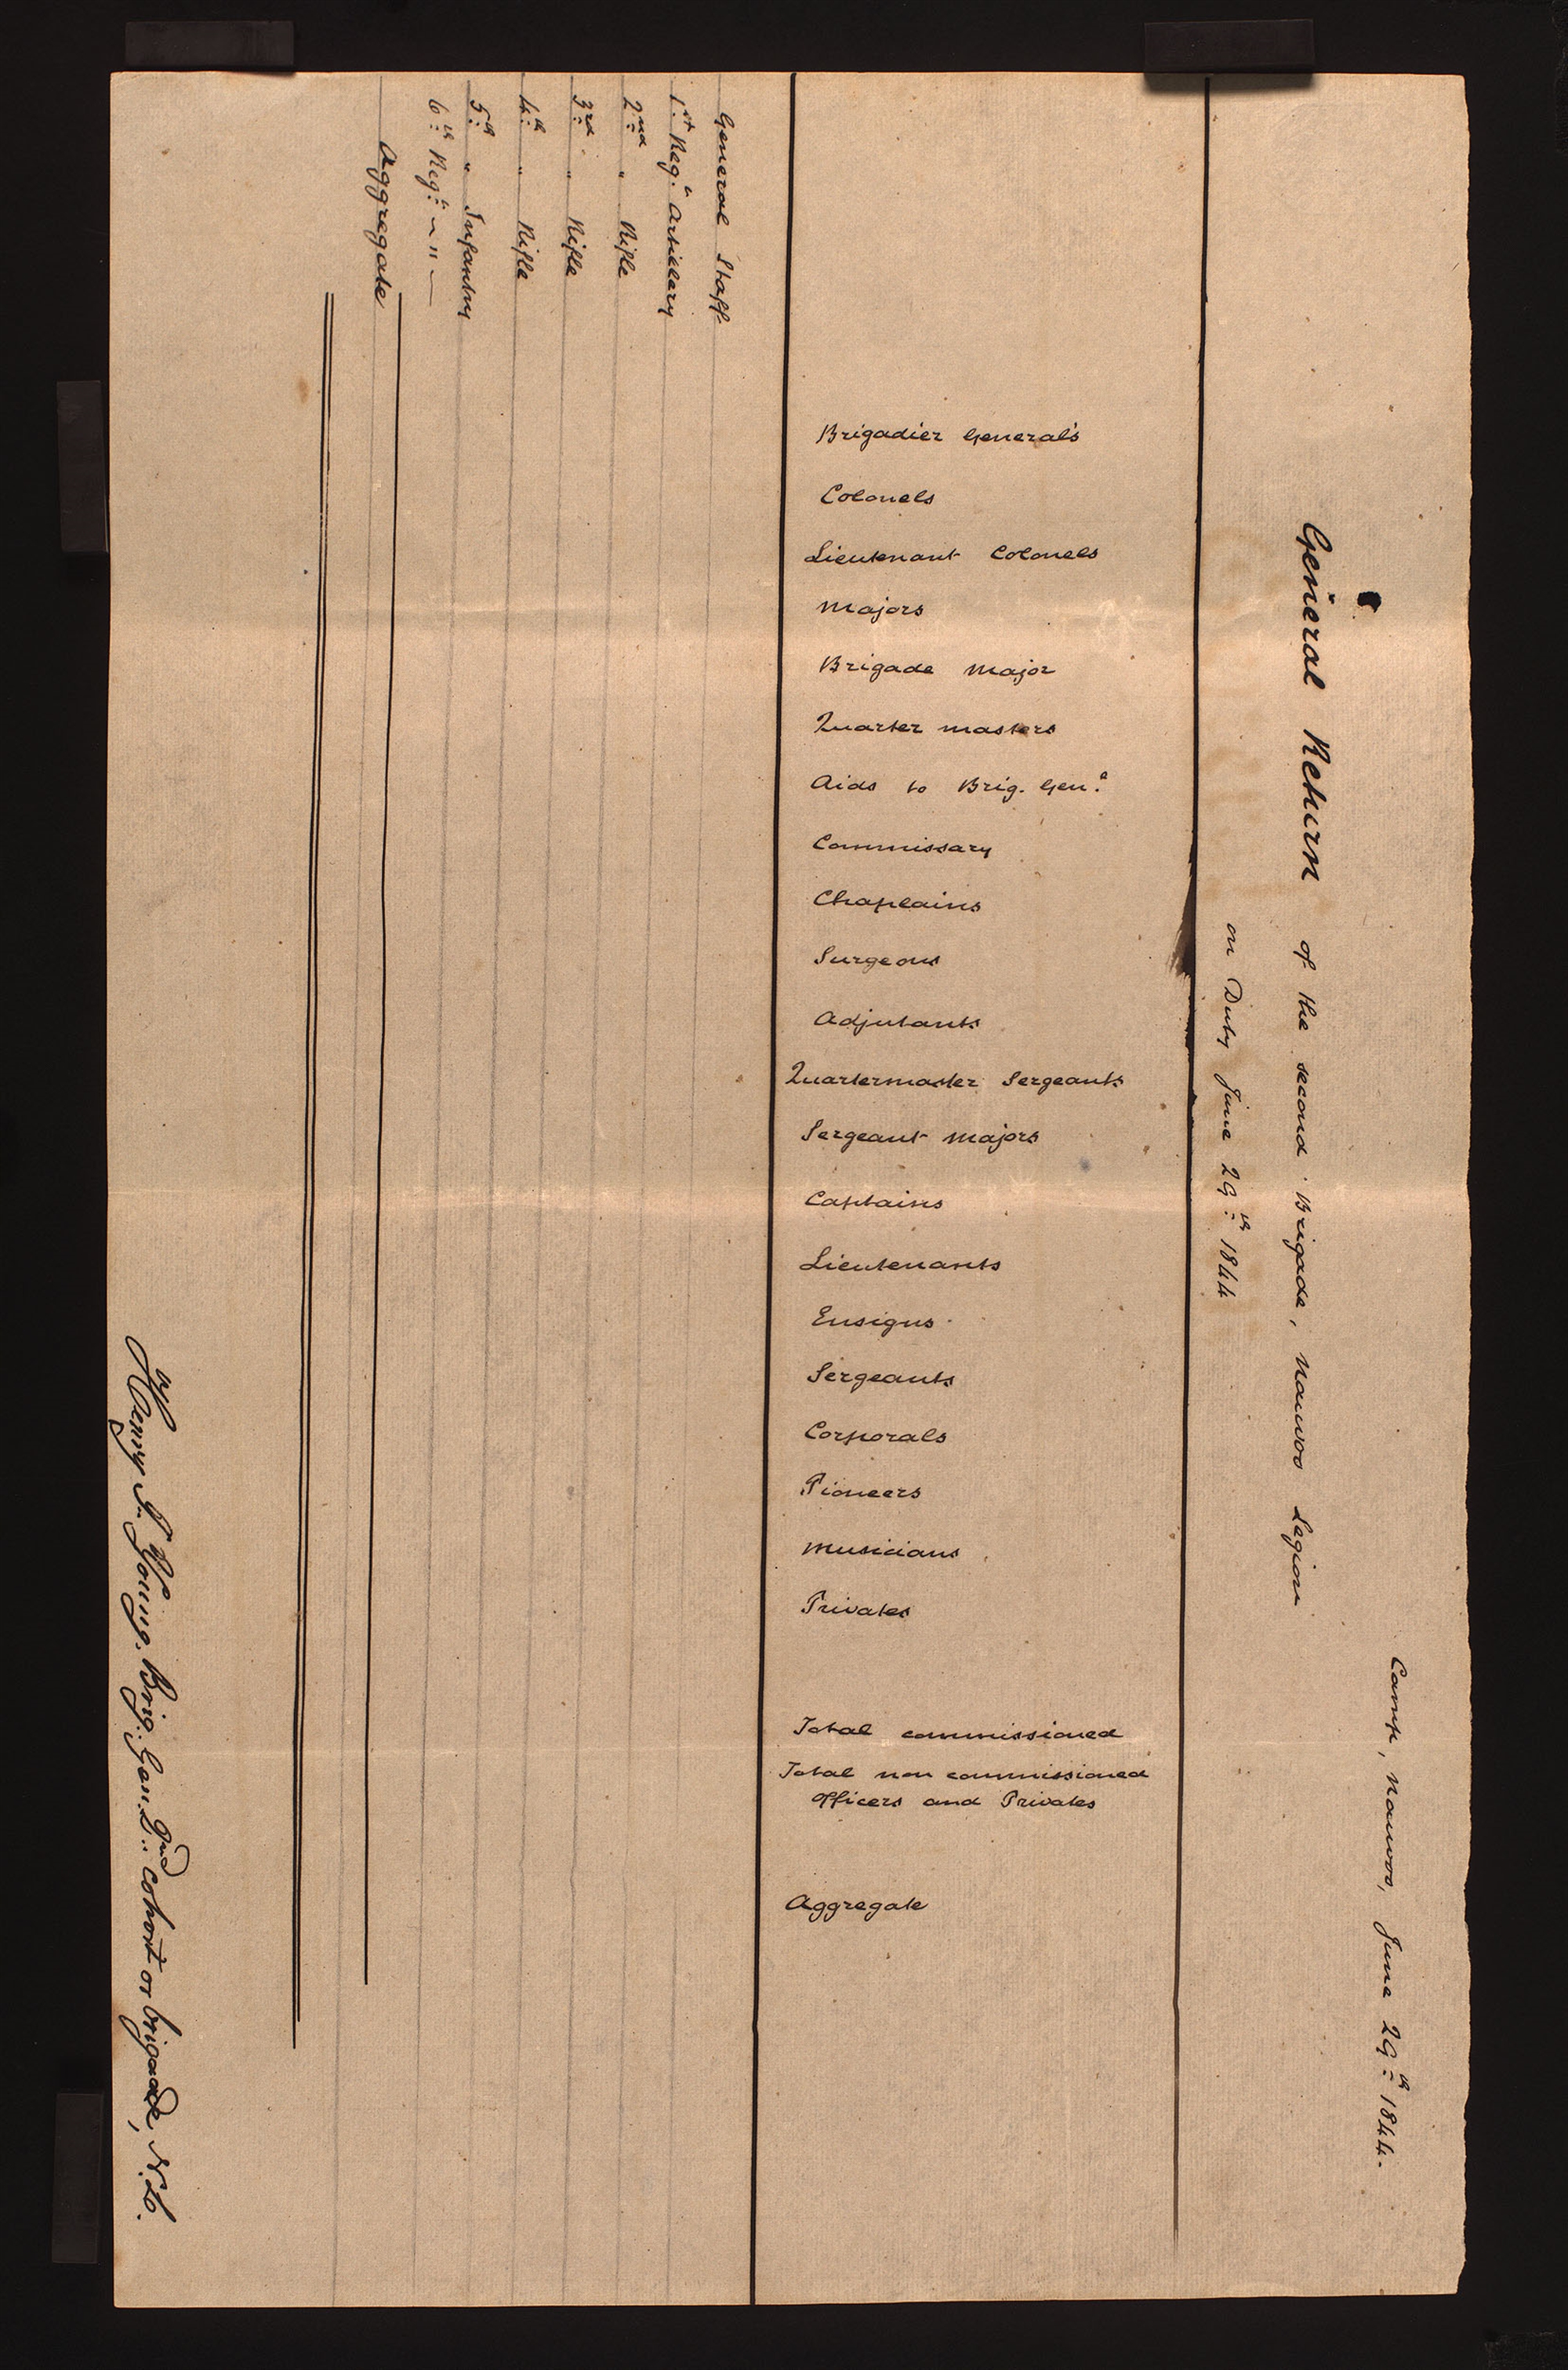 Camp, Nauvoo, June 29th 1844.
General Return of the second Brigade, Nauvoo Legion
on Duty June 29th 1844
Brigadier General's
Colonels
Lieutenant Colonels
Majors
Brigade Major
Quarter masters
Aids to Brig. Genl
Commissary
Chaplains
Surgeons
Adjutants
Quartermaster Sergeants
Sergeant Majors
Captains
Lieutenants
Ensigns
Sergeants
Corporals
Pioneers
Musicians
Privates
Total commissioned
Total non commissioned
officers and Privates
Aggregate
General Staff
1st Regt Artillery
2nd " Rifle
3rd " Rifle
4th " Rifle
5th " Infantry
6th Regt — " —
Aggregate
Henry Young. Brig. Gen. 2nd cohort or brigade, N.L.